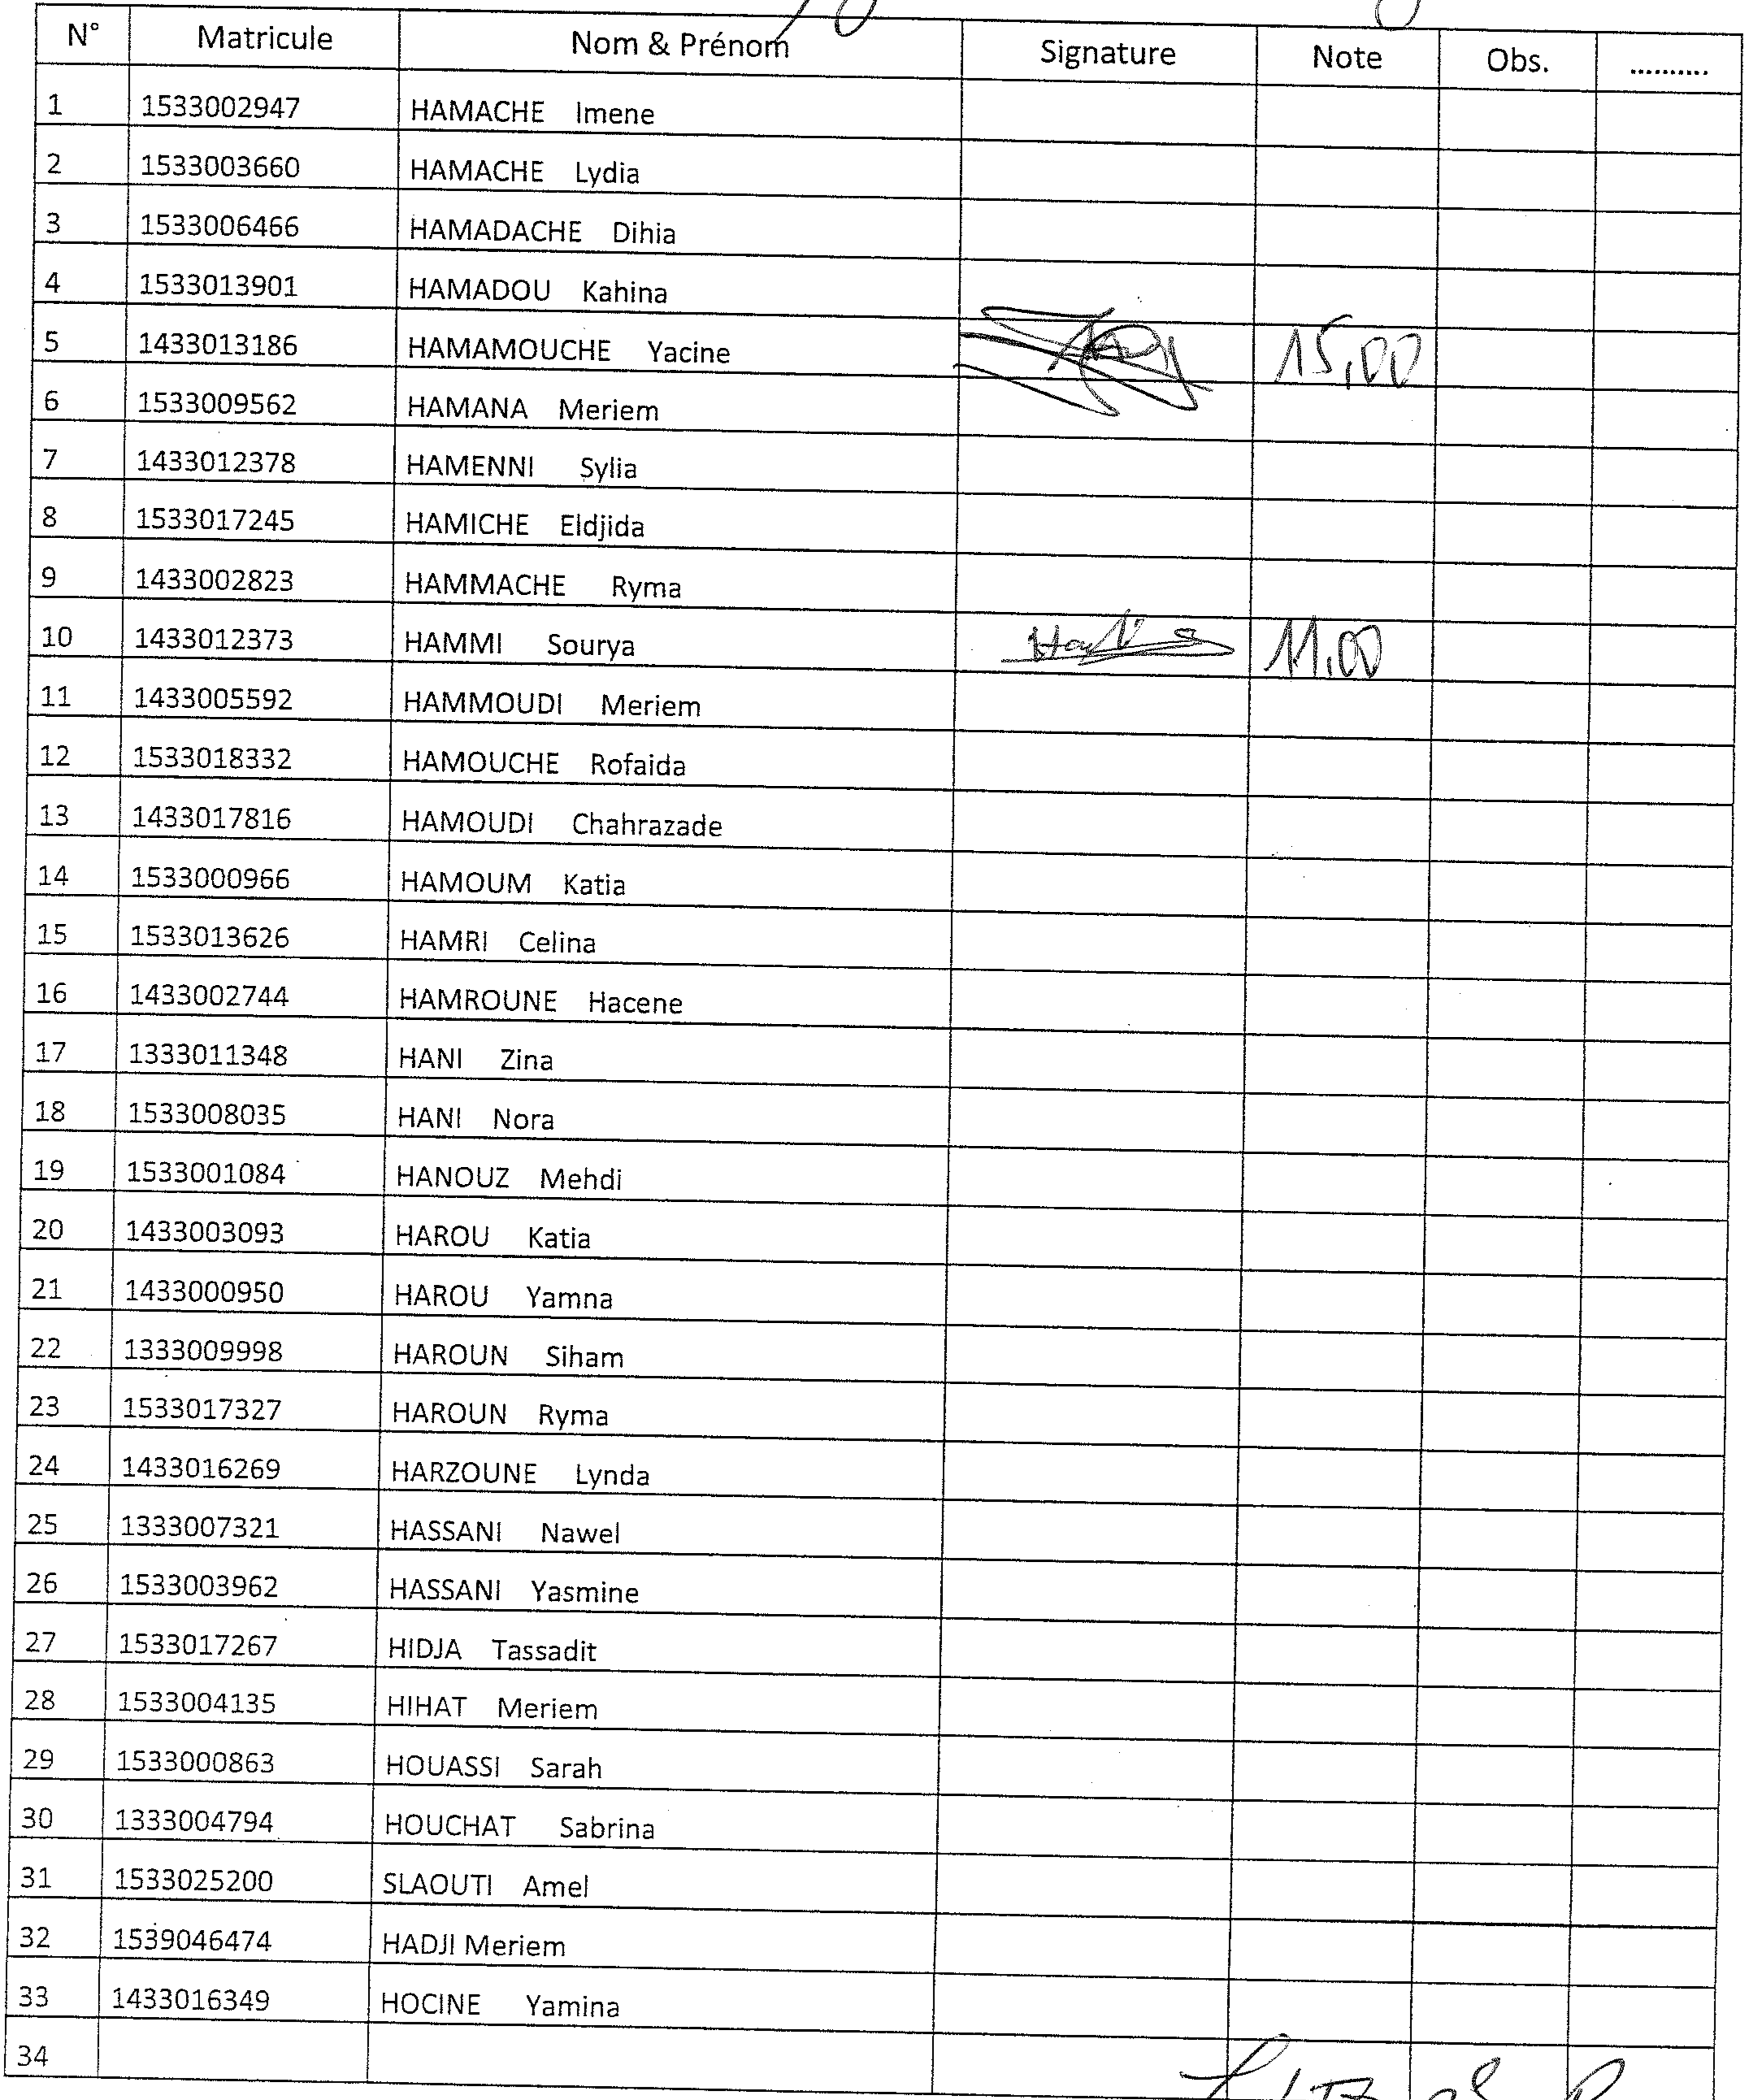 N° Matricule Nom & Prénom Signature Note Obs. ..........
1 1533002947 HAMACHE Imene
2 1533003660 HAMACHE Lydia
3 1533006466 HAMADACHE Dihia
4 1533013901 HAMADOU Kahina
5 1433013186 HAMAMOUCHE Yacine 15,00
6 1533009562 HAMANA Meriem
7 1433012378 HAMENNI Sylia
8 1533017245 HAMICHE Eldjida
9 1433002823 HAMMACHE Ryma
10 1433012373 HAMMI Sourya 11,00
11 1433005592 HAMMOUDI Meriem
12 1533018332 HAMOUCHE Rofaida
13 1433017816 HAMOUDI Chahrazade
14 1533000966 HAMOUM Katia
15 1533013626 HAMRI Celina
16 1433002744 HAMROUNE Hacene
17 1333011348 HANI Zina
18 1533008035 HANI Nora
19 1533001084 HANOUZ Mehdi
20 1433003093 HAROU Katia
21 1433000950 HAROU Yamna
22 1333009998 HAROUN Siham
23 1533017327 HAROUN Ryma
24 1433016269 HARZOUNE Lynda
25 1333007321 HASSANI Nawel
26 1533003962 HASSANI Yasmine
27 1533017267 HIDJA Tassadit
28 1533004135 HIHAT Meriem
29 1533000863 HOUASSI Sarah
30 1333004794 HOUCHAT Sabrina
31 1533025200 SLAOUTI Amel
32 1539046474 HADJI Meriem
33 1433016349 HOCINE Yamina
34